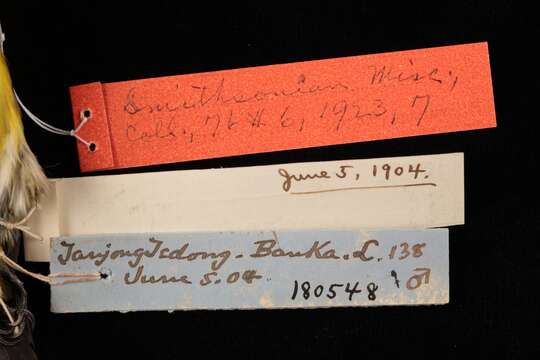 Smithsonian Misc.,
Coll., 76 # 6, 1923, 7
June 5, 1904.
Tanjong Tedong. Banka. L. 138
June 5. 04.
180548 ♂